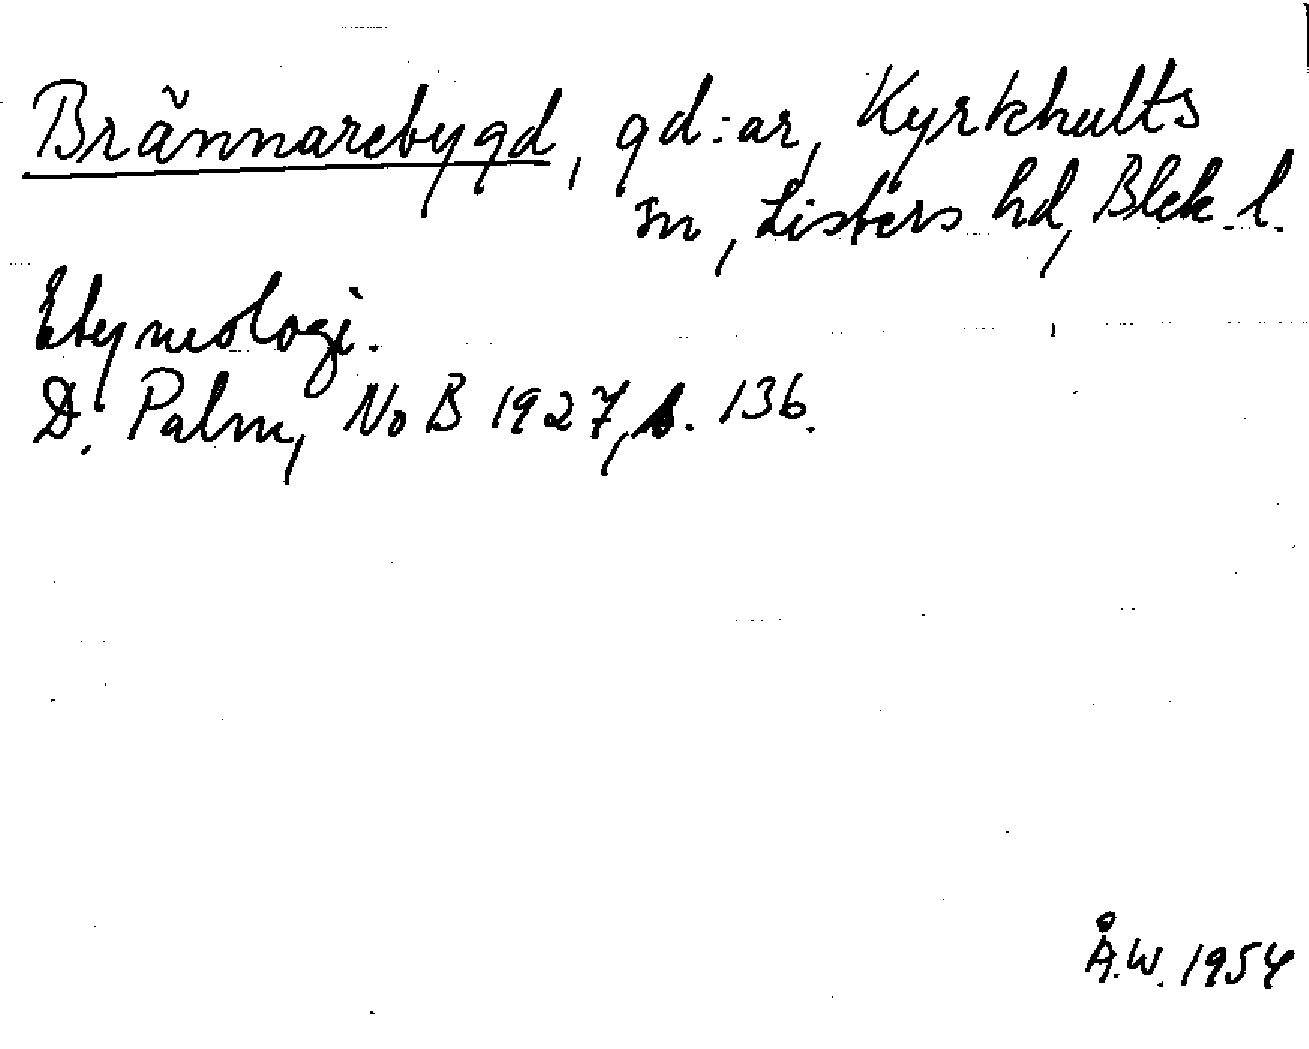 Brännarebygd, gd:ar, Kyrkhults
sn, Listers hd, Blek. l.
Etymologi.
D. Palm, NoB 1927, s. 136.
Å.W. 1954